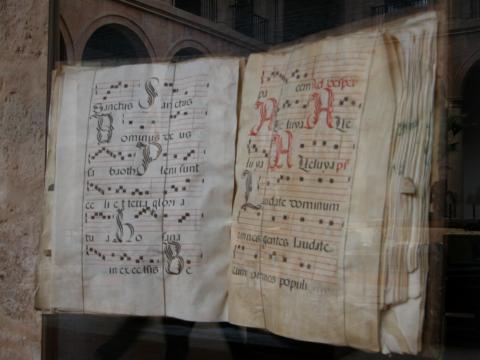 Sanctus Sanctus
Dominus deus
sabaoth Pleni sunt
celi et terra glori a
tua Ho sana
in ex celsis Be
pa cem Ad vesper
Alleluya Alle
luya Alleluya ps
Laudate dominum
omnes gentes Laudate
eum omnes populi